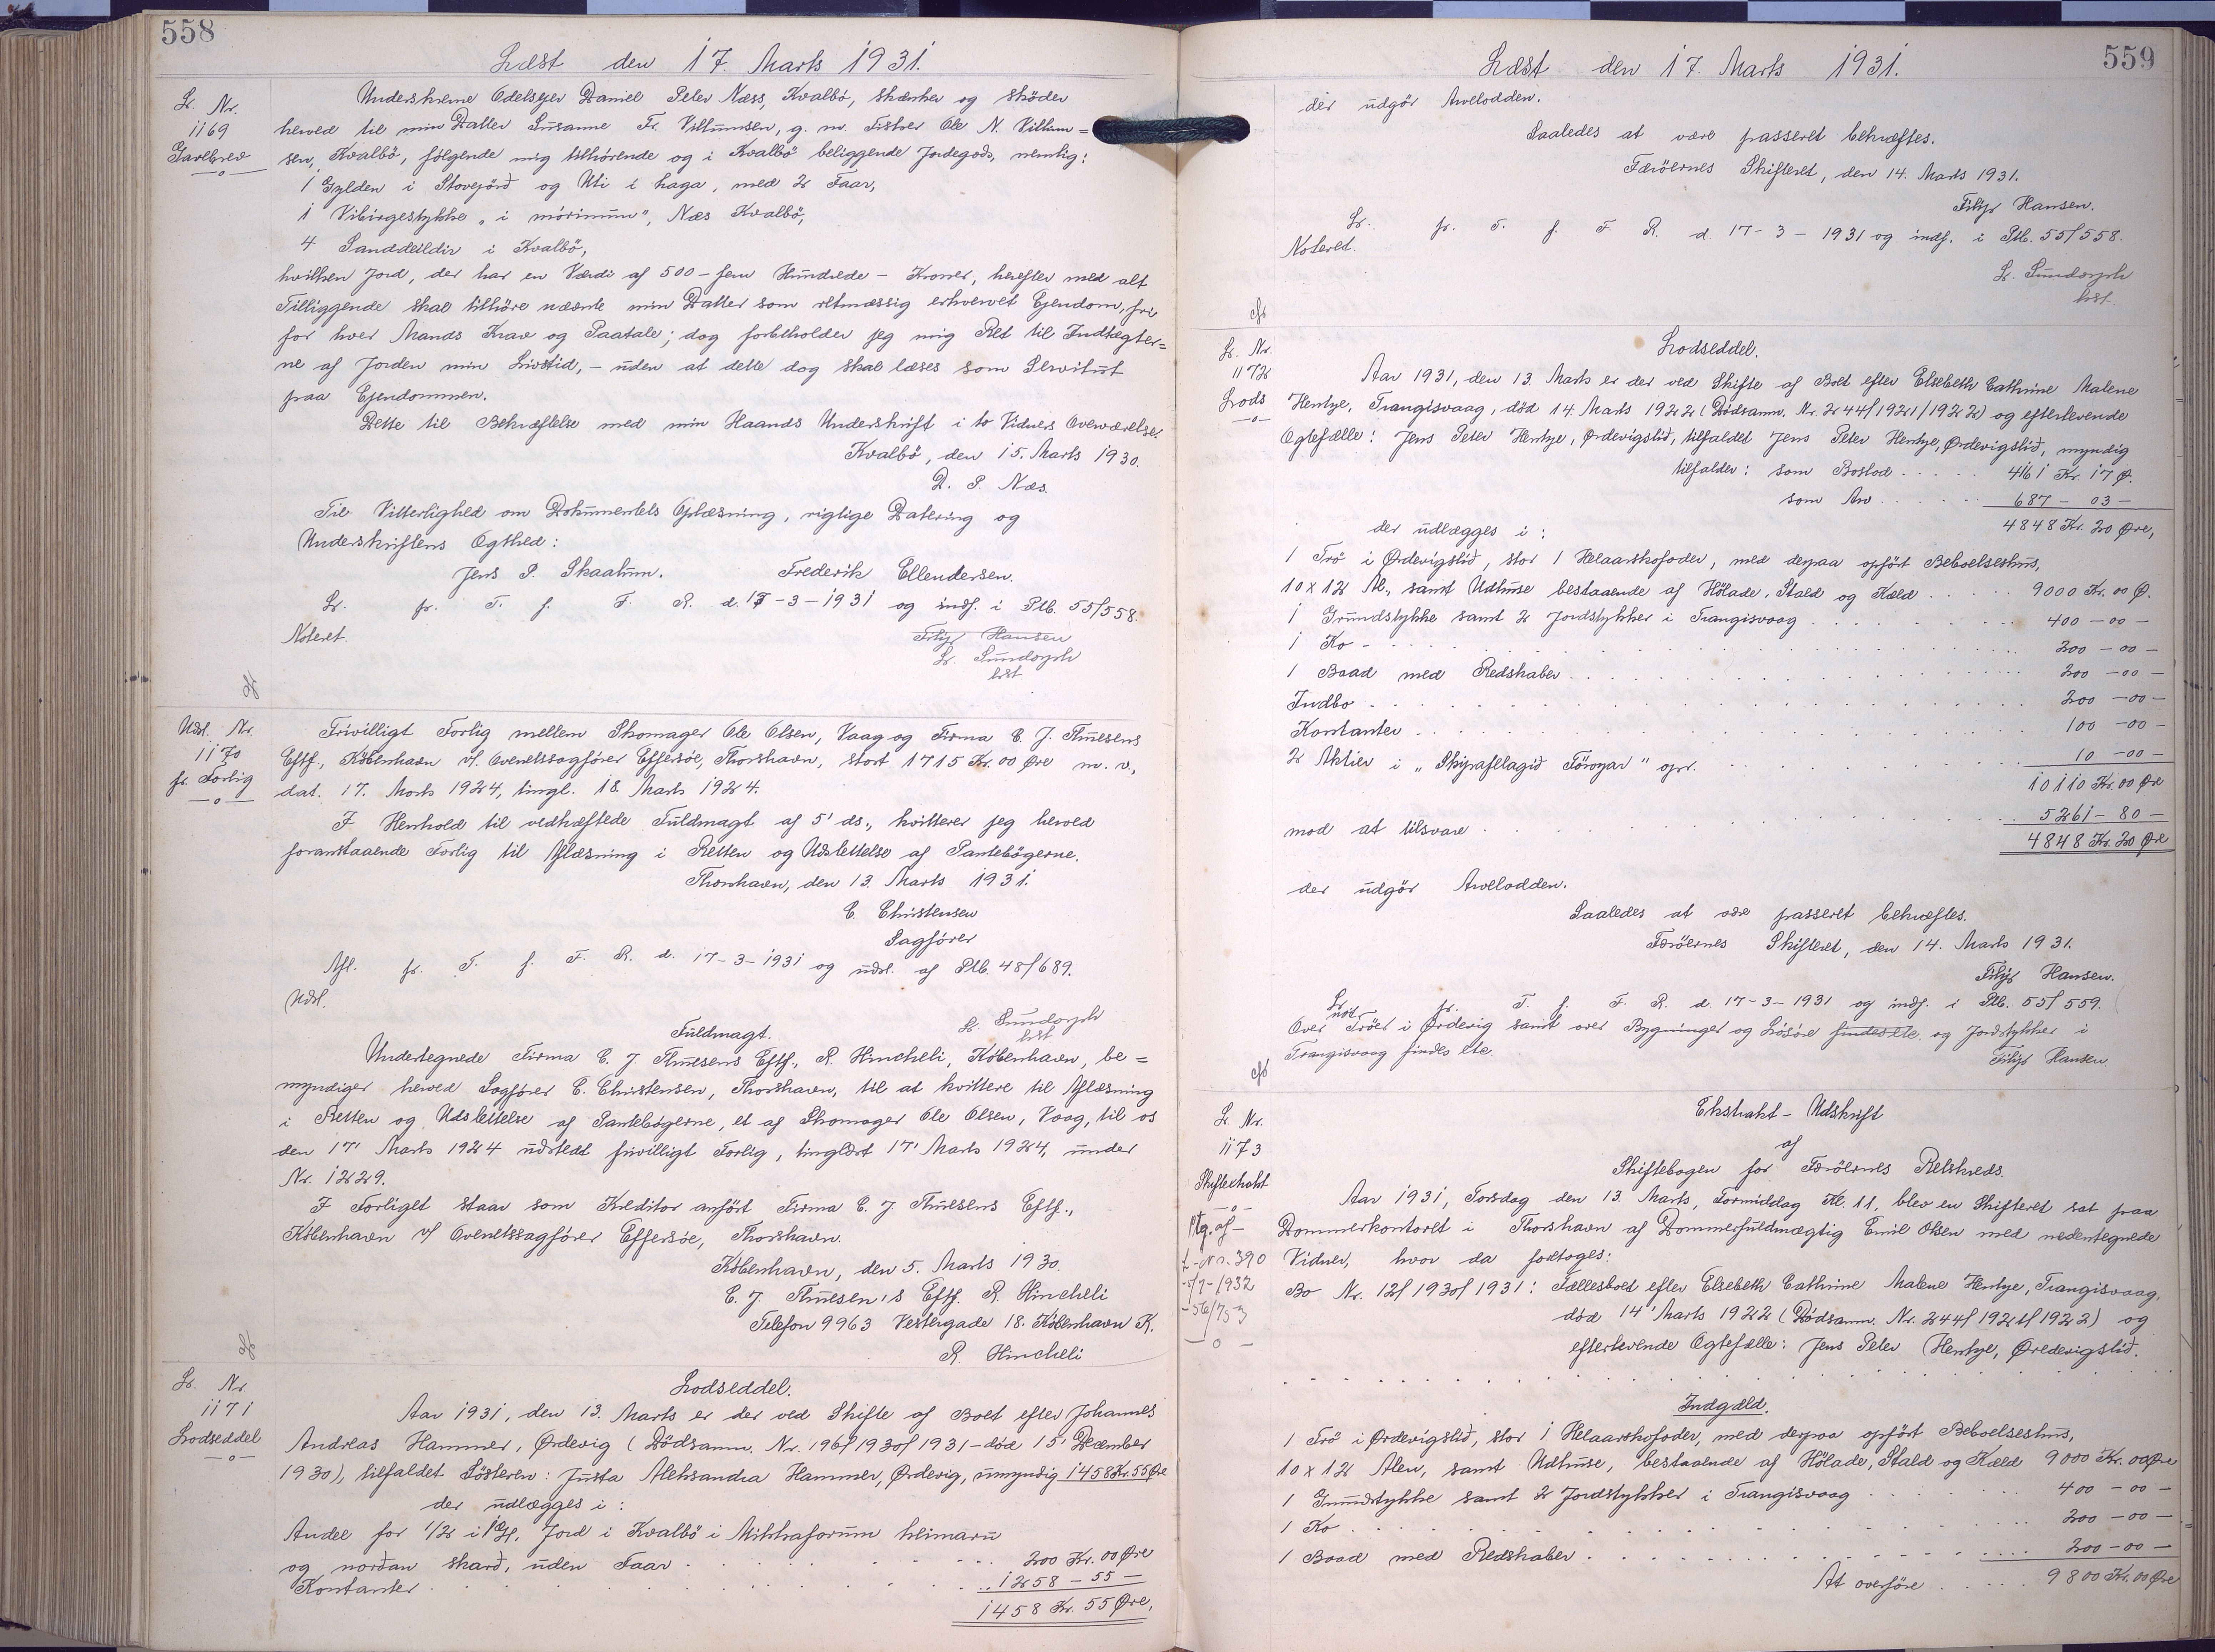 558
Læst den 17. Marts 1931.
L. Nr.
1169
Gavebrev
Underskrevne Odelsejer Daniel Peter Næss, Kvalbö, skænker og sköder
herved til min Datter Susanne Fr. Villumsen, g. m. Fisker Ole N. Villum=
sen, Kvalbö, følgende mig tilhörende og i Kvalbö beliggende Jordegods, nemlig:
1 Gylden i Stovejörð og Uti i haga, med 2 Faar,
1 Vibirgestykke „i mörinum”, Næs Kvalbö,
4 Sanddeildir i Kvalbö,
hvilken Jord, der har en Værdi af 500 - fem Hundrede - Kroner, herefter med alt
Tilliggende skal tilhöre nævnte min Datter som retmæssig erhvervet Ejendom, fri
for hver Mands Krav og Paatale; dog forbeholder jeg mig Ret til Indtægter=
ne af Jorden min Livstid, - uden at dette dog skal læses som Servitut
paa Ejendommen.
Dette til Bekræftelse med min Haands Underskrift i to Vidners Overværelse.
Kvalbö, den 15. Marts 1930.
D. P. Næs.
Til Vitterlighed om Dokumentets Oplæsning, rigtige Datering og
Underskriftens Ægthed:
Jens P. Skaalum. Frederik Ellendersen.
L. fr. T. f. F. R. d. 17-3-1931 og indf. i Ptb. 55/558.
Noteret. Filip Hansen
L. Sundorph
kst.
Udsl. Nr.
1170
fr. Forlig
Frivilligt Forlig mellem Skomager Ole Olsen, Vaag og Firma C. J. Thuesens
Eftf., København v/ Overretssagfører Effersøe, Thorshavn, stort 1715 Kr. 00 Øre m. v.,
dat. 17. Marts 1924, tingl. 18. Marts 1924.
I Henhold til vedhæftede Fuldmagt af 5' ds., kvitterer jeg herved
foranstaaende Forlig til Aflæsning i Retten og Udslettelse af Pantebøgerne.
Thorshavn, den 13. Marts 1931.
C. Christensen
Sagfører
Afl. fr. T. f. F. R. d. 17-3-1931 og udsl. af Ptb. 48/689.
Udsl.
L. Sundorph
kst.
Fuldmagt.
Undertegnede Firma C. J. Thuesens Eftf., R. Hincheli, København, be=
myndiger herved Sagfører C. Christensen, Thorshavn, til at kvittere til Aflæsning
i Retten og Udslettelse af Pantebøgerne, et af Skomager Ole Olsen, Vaag, til os
den 17' Marts 1924 udstedt frivilligt Forlig, tinglæst 17' Marts 1924, under
Nr. 1229.
I Forliget staar som Kreditor anført Firma C. J. Thuesens Eftf.,
København v/ Overretssagfører Effersøe, Thorshavn.
København, den 5. Marts 1930.
C. J. Thuesen's Eftf. R. Hincheli
Telefon 9963 Vestergade 18. København K.
R. Hincheli
L. Nr.
1171
Lodseddel
Lodseddel.
Aar 1931, den 13. Marts er der ved Skifte af Boet efter Johannes
Andreas Hammer, Ørdevig (Dödsanm. Nr. 196/1930/1931 - död 15' December
1930), tilfaldet Sösteren: Justa Aleksandra Hammer, Ørdevig, umyndig 1458 Kr. 55 Øre
der udlægges i:
Andel for 1/2 i 1 Gl. Jord i Kvalbö i Mikkaforum heimaru
og norðan skarð, uden Faar 200 Kr. 00 Øre
Kontanter 1258 - 55 -
1458 Kr. 55 Øre,
559
Læst den 17. Marts 1931.
der udgör Arvelodden.
Saaledes at være passeret bekræftes.
Færöernes Skifteret, den 14. Marts 1931.
Filip Hansen.
L. fr. T. f. F. R. d. 17-3-1931 og indf. i Ptb. 55/558.
Noteret.
L. Sundorph
kst.
L. Nr.
1172
Lods
Lodseddel.
Aar 1931, den 13. Marts er der ved Skifte af Boet efter Elsebeth Cathrine Malene
Hentze, Trangisvaag, död 14. Marts 1922 (Dödsanm. Nr. 244/1921/1922) og efterlevende
Ægtefælle: Jens Peter Hentze, Ørdevigslið, tilfaldet Jens Peter Hentze, Ørdevigslið, myndig
tilfalder: som Boslod 4161 Kr. 17 Ø.
som Arv 687 - 03 -
4848 Kr. 20 Øre,
der udlægges i:
1 Trö i Ørdevigslið, stor 1 Helaarskofoder, med derpaa opfört Beboelseshus,
10 x 12 Al., samt Udhuse bestaaende af Hölade, Stald og Kæld 9000 Kr. 00 Ø.
1 Grundstykke samt 2 Jordstykker i Trangisvaag 400 - 00 -
1 Ko 200 - 00 -
1 Baad med Redskaber 200 - 00 -
Indbo 200 - 00 -
Kontanter 100 - 00 -
2 Aktier i „Skipafelagið Föroyar” opr. 10 - 00 -
10110 Kr. 00 Øre
mod at tilsvare 5261 - 80 -
4848 Kr. 20 Øre
der udgör Arvelodden.
Saaledes at være passeret bekræftes.
Færöernes Skifteret, den 14. Marts 1931.
Filip Hansen.
L. fr. T. f. F. R. d. 17-3-1931 og indf. i Ptb. 55/559.
Over Tröer i Ørdevig samt over Bygninger og Lösöre findes ete. og Jordstykker i
Trangisvaag findes ete.
Filip Hansen
L. Nr.
1173
Skifteekstrakt
Ptg. af
L-Nr. 390
5/7-1932
56/753
Ekstrakt - Udskrift
af
Skiftebogen for Færöernes Retskreds.
Aar 1931, Torsdag den 13. Marts, Formiddag Kl. 11, blev en Skifteret sat paa
Dommerkontoret i Thorshavn af Dommerfuldmægtig Emil Olsen med nedentegnede
Vidner, hvor da foretoges:
Bo Nr. 12/1930/1931: Fællesboet efter Elsebeth Cathrine Malene Hentze, Trangisvaag,
död 14' Marts 1922 (Dödsanm. Nr. 244/1921/1922) og
efterlevende Ægtefælle: Jens Peter Hentze, Øredevigslið.
Indgæld.
1 Trö i Ørdevigslið, stor 1 Helaarskofoder, med derpaa opfört Beboelseshus,
10 x 12 Alen, samt Udhuse, bestaaende af Hölade, Stald og Kæld 9000 Kr. 00 Øre
1 Grundstykke samt 2 Jordstykker i Trangisvaag 400 - 00 -
1 Ko 200 - 00 -
1 Baad med Redskaber 200 - 00 -
At overföre 9800 Kr. 00 Øre